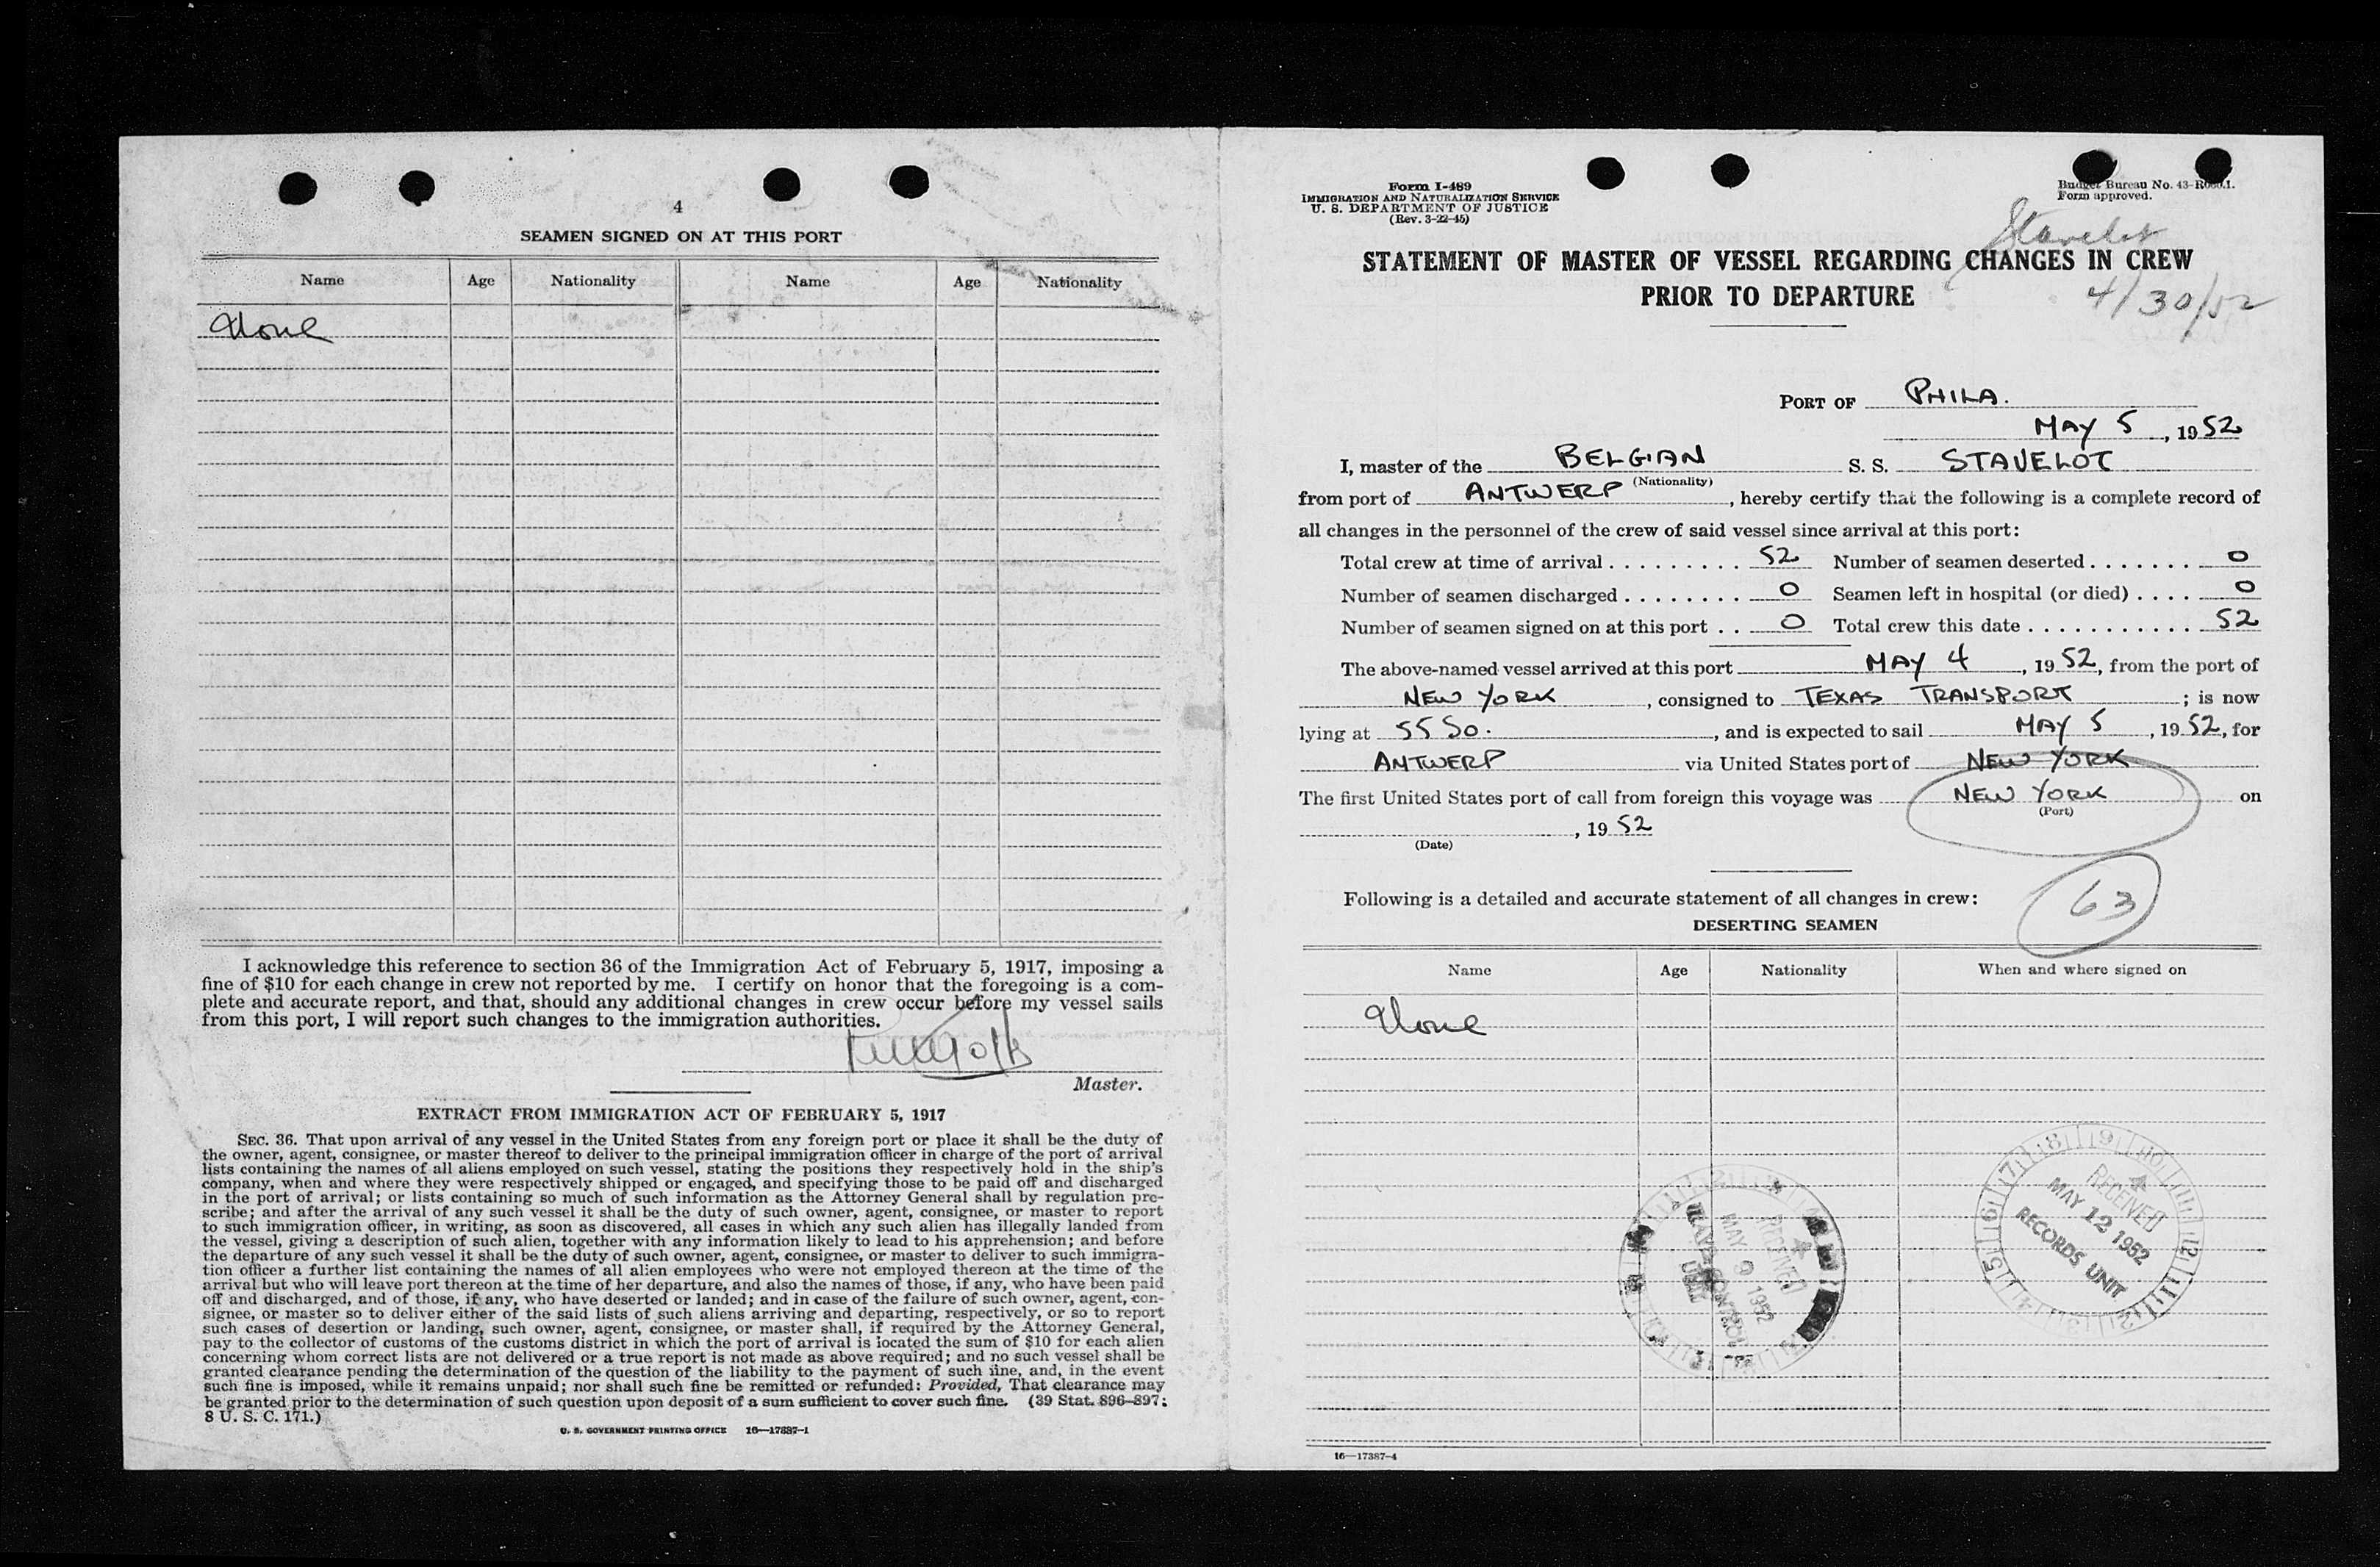 4
SEAMEN SIGNED ON AT THIS PORT
Name Age Nationality Name Age Nationality
None
I acknowledge this reference to section 36 of the Immigration Act of February 5, 1917, imposing a
fine of $10 for each change in crew not reported by me. I certify on honor that the foregoing is a com-
plete and accurate report, and that, should any additional changes in crew occur before my vessel sails
from this port, I will report such changes to the immigration authorities.
Master.
EXTRACT FROM IMMIGRATION ACT OF FEBRUARY 5, 1917
SEC. 36. That upon arrival of any vessel in the United States from any foreign port or place it shall be the duty of
the owner, agent, consignee, or master thereof to deliver to the principal immigration officer in charge of the port of arrival
lists containing the names of all aliens employed on such vessel, stating the positions they respectively hold in the ship's
company, when and where they were respectively shipped or engaged, and specifying those to be paid off and discharged
in the port of arrival; or lists containing so much of such information as the Attorney General shall by regulation pre-
scribe; and after the arrival of any such vessel it shall be the duty of such owner, agent, consignee, or master to report
to such immigration officer, in writing, as soon as discovered, all cases in which any such alien has illegally landed from
the vessel, giving a description of such alien, together with any information likely to lead to his apprehension; and before
the departure of any such vessel it shall be the duty of such owner, agent, consignee, or master to deliver to such immigra-
tion officer a further list containing the names of all alien employees who were not employed thereon at the time of the
arrival but who will leave port thereon at the time of her departure, and also the names of those, if any, who have been paid
off and discharged, and of those, if any, who have deserted or landed; and in case of the failure of such owner, agent, con-
signee, or master so to deliver either of the said lists of such aliens arriving and departing, respectively, or so to report
such cases of desertion or landing, such owner, agent, consignee, or master shall, if required by the Attorney General,
pay to the collector of customs of the customs district in which the port of arrival is located the sum of $10 for each alien
concerning whom correct lists are not delivered or a true report is not made as above required; and no such vessel shall be
granted clearance pending the determination of the question of the liability to the payment of such fine, and, in the event
such fine is imposed, while it remains unpaid; nor shall such fine be remitted or refunded: Provided, That clearance may
be granted prior to the determination of such question upon deposit of a sum sufficient to cover such fine. (39 Stat. 896–897;
8 U. S. C. 171.)
U. S. GOVERNMENT PRINTING OFFICE 16—17387-1
Form I-489
IMMIGRATION AND NATURALIZATION SERVICE
U. S. DEPARTMENT OF JUSTICE
(Rev. 3-22-45)
Budget Bureau No. 43-R060.1.
Form approved.
Stavelot
STATEMENT OF MASTER OF VESSEL REGARDING CHANGES IN CREW
PRIOR TO DEPARTURE
4/30/52
PORT OF PHILA.
MAY 5, 1952
I, master of the BELGIAN S. S. STAVELOT
(Nationality)
from port of ANTWERP, hereby certify that the following is a complete record of
all changes in the personnel of the crew of said vessel since arrival at this port:
Total crew at time of arrival . . . . . . . . . 52 Number of seamen deserted . . . . . . . 0
Number of seamen discharged . . . . . . . . 0 Seamen left in hospital (or died) . . . . 0
Number of seamen signed on at this port . . 0 Total crew this date . . . . . . . . . . . . 52
The above-named vessel arrived at this port MAY 4, 1952, from the port of
NEW YORK, consigned to TEXAS TRANSPORT; is now
lying at 55 So., and is expected to sail MAY 5, 1952, for
ANTWERP via United States port of NEW YORK
The first United States port of call from foreign this voyage was NEW YORK on
(Port)
, 1952
(Date)
63
Following is a detailed and accurate statement of all changes in crew:
DESERTING SEAMEN
Name Age Nationality When and where signed on
None
RECEIVED
MAY 9 1952
CONTROL
UNIT
RECEIVED
MAY 12 1952
RECORDS UNIT
16—17387-4